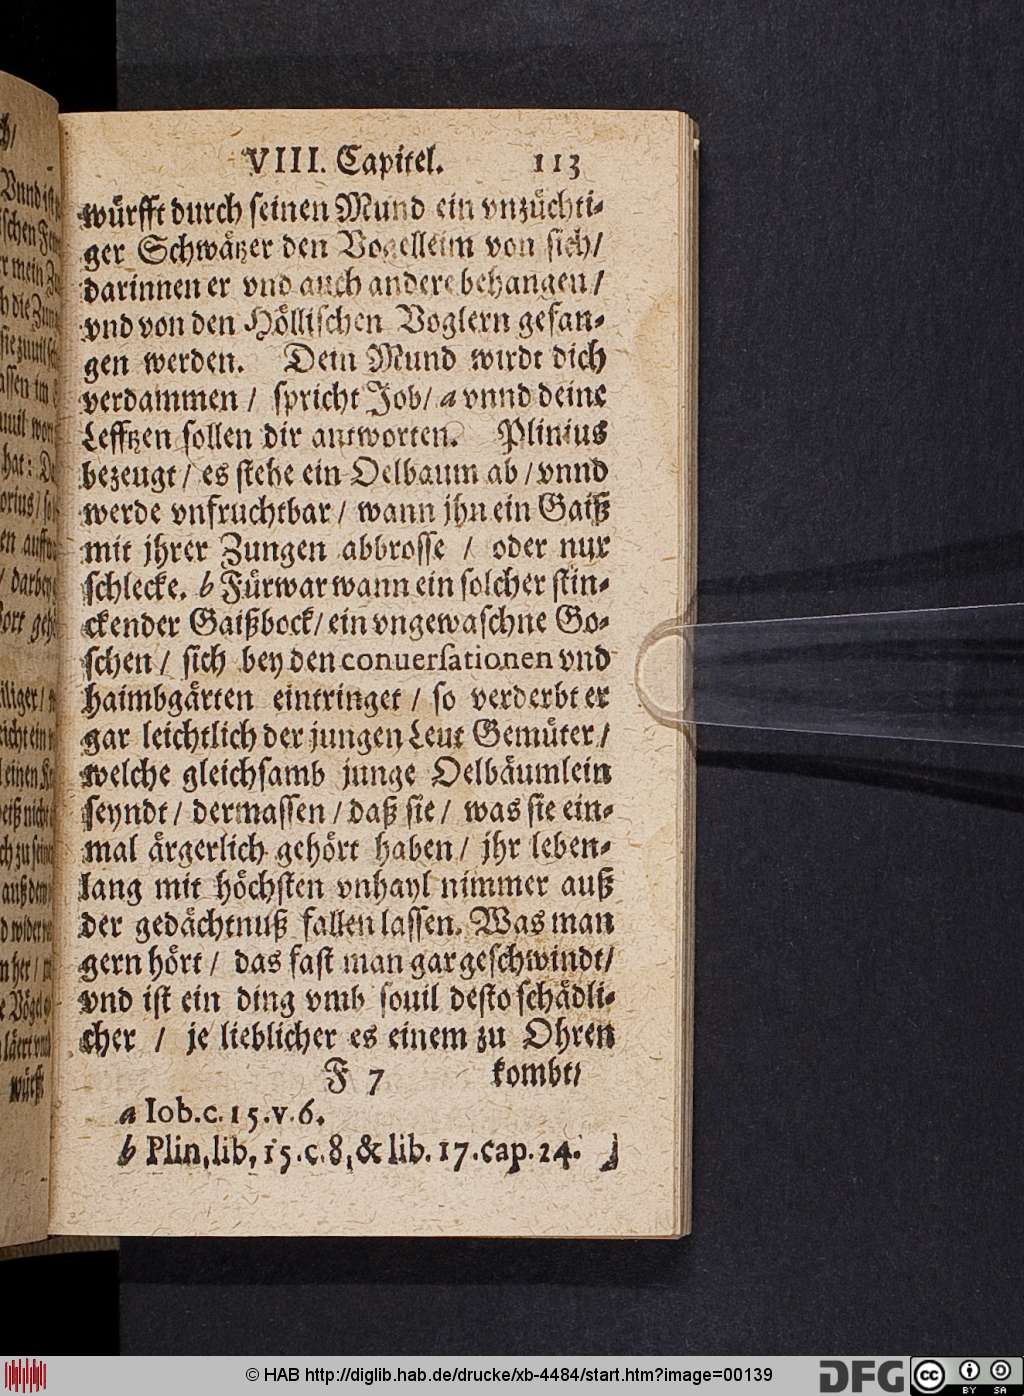 VIII. Capitel. 113
würfft durch seinen Mund ein vnzüchti-
ger Schwätzer den Vogelleim von sich/
darinnen er vnd auch andere behangen/
vnd von den Höllischen Voglern gefan-
gen werden. Dein Mund wirdt dich
verdammen / spricht Job/ a vnnd deine
Lefftzen sollen dir antworten. Plinius
bezeugt / es stehe ein Oelbaum ab / vnnd
werde vnfruchtbar / wann jhn ein Gaiß
mit jhrer Zungen abbrosse / oder nur
schlecke. b Fürwar wann ein solcher stin-
ckender Gaißbock/ ein vngewaschne Go-
schen / sich bey den conuersationen vnd
haimbgärten eintringet / so verderbt er
gar leichtlich der jungen Leut Gemüter/
welche gleichsamb junge Oelbäumlein
seyndt / dermassen / daß sie / was sie ein-
mal ärgerlich gehört haben / jhr leben-
lang mit höchsten vnhayl nimmer auß
der gedächtnuß fallen lassen. Was man
gern hört / das fast man gar geschwindt/
vnd ist ein ding vmb souil desto schädli-
cher / je lieblicher es einem zu Ohren
F 7 kombt/
a Iob.c.15.v.6.
b Plin.lib.15.c.8.& lib.17.cap.24.
würfft
© HAB http://diglib.hab.de/drucke/xb-4484/start.htm?image=00139
DFG
cc BY SA